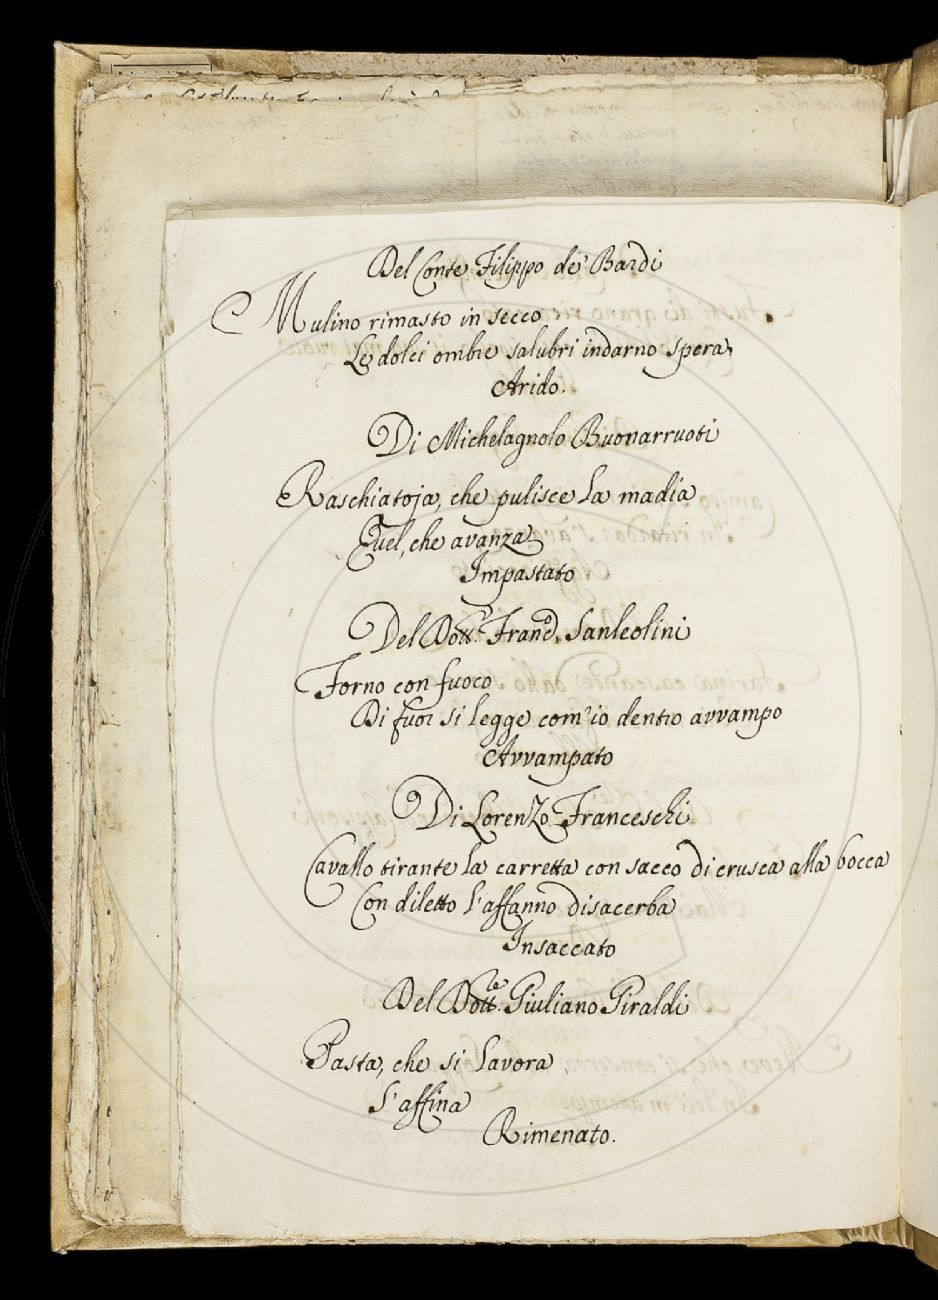 Del Conte Filippo de' Bardi
Mulino rimasto in secco
Le dolci ombre salubri indarno spera
Arido.
Di Michelagnolo Buonarruoti
Raschiatoja, che pulisce la madia
Quel, che avanza
Impastato
Del Dott.re Franc.o Sanleolini
Forno con fuoco
Di fuor si legge com'io dentro avvampo
Avvampato
Di Lorenzo Franceschi
Cavallo tirante la carretta con sacco di crusca alla bocca
Con diletto l'affanno disacerba
Insaccato
Del Dott.re Giuliano Giraldi
Pasta, che si lavora
S'affina
Rimenato.